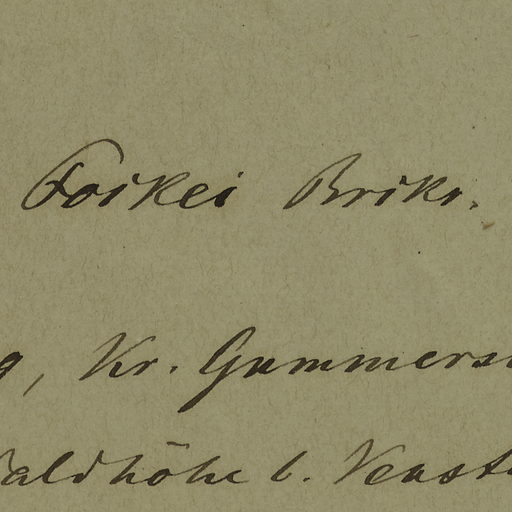 Foikei Brikr.
g, Kr. Gummers
Waldhöhe b. Neust